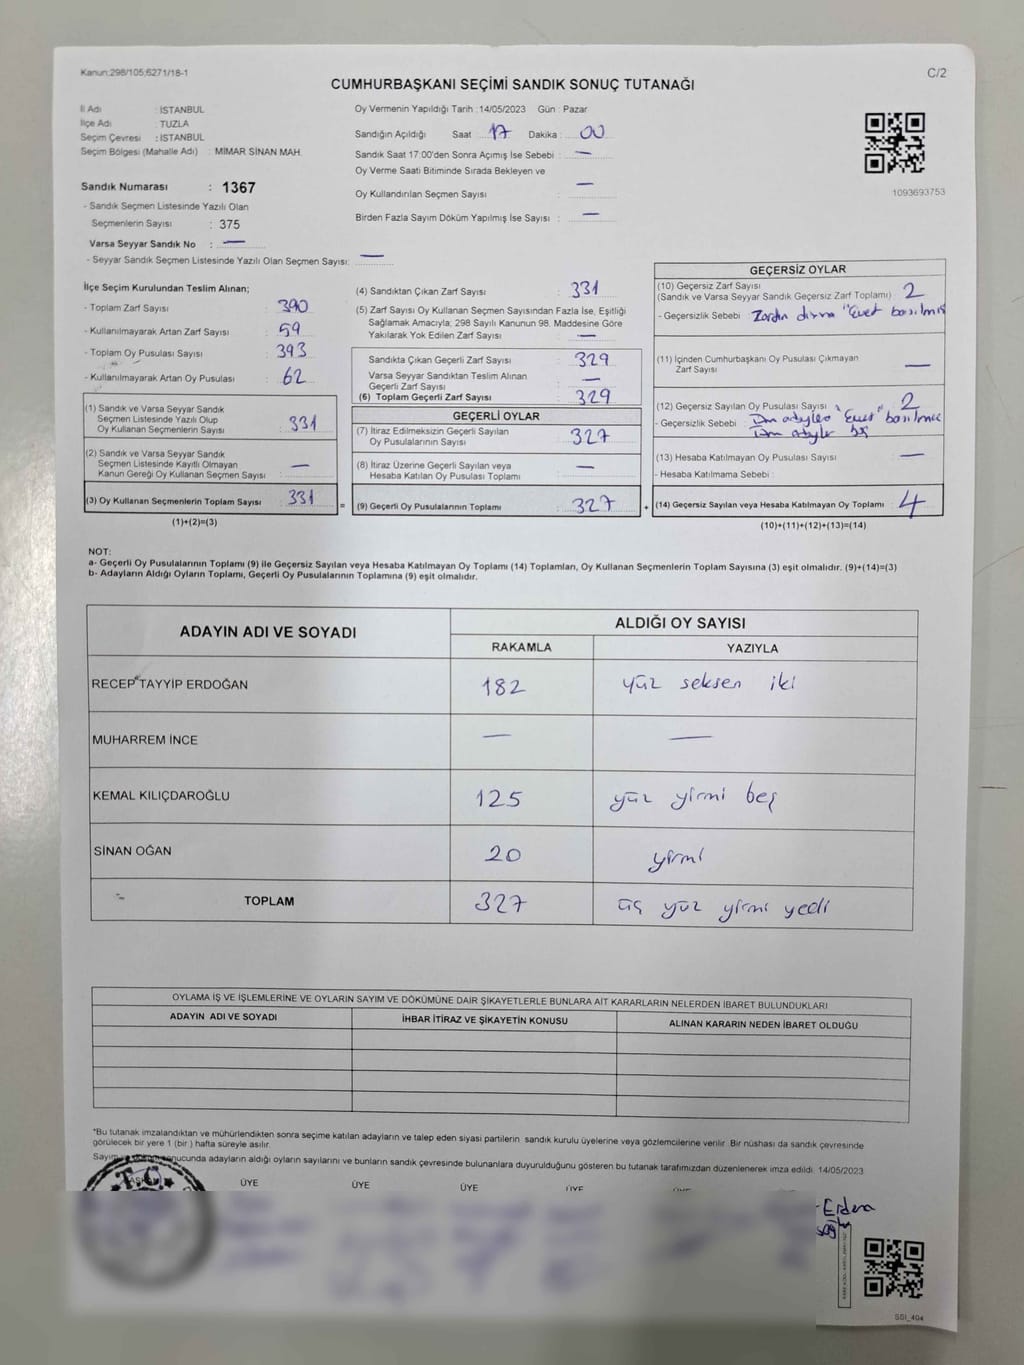 Kanun:298/105;6271/18-1
C/2
CUMHURBAŞKANI SEÇİMİ SANDIK SONUÇ TUTANAĞI
İl Adı : İSTANBUL
İlçe Adı : TUZLA
Seçim Çevresi : İSTANBUL
Seçim Bölgesi (Mahalle Adı) : MİMAR SİNAN MAH.
Sandık Numarası : 1367
- Sandık Seçmen Listesinde Yazılı Olan
Seçmenlerin Sayısı : 375
Varsa Seyyar Sandık No : —
- Seyyar Sandık Seçmen Listesinde Yazılı Olan Seçmen Sayısı: —
Oy Vermenin Yapıldığı Tarih : 14/05/2023 Gün : Pazar
Sandığın Açıldığı Saat : 17 Dakika : 00
Sandık Saat 17:00'den Sonra Açımış İse Sebebi : —
Oy Verme Saati Bitiminde Sırada Bekleyen ve
Oy Kullandırılan Seçmen Sayısı —
Birden Fazla Sayım Döküm Yapılmış İse Sayısı : —
1093693753
İlçe Seçim Kurulundan Teslim Alınan;
- Toplam Zarf Sayısı : 390
- Kullanılmayarak Artan Zarf Sayısı : 59
- Toplam Oy Pusulası Sayısı : 393
- Kullanılmayarak Artan Oy Pusulası : 62
(1) Sandık ve Varsa Seyyar Sandık
Seçmen Listesinde Yazılı Olup
Oy Kullanan Seçmenlerin Sayısı : 331
(2) Sandık ve Varsa Seyyar Sandık
Seçmen Listesinde Kayıtlı Olmayan
Kanun Gereği Oy Kullanan Seçmen Sayısı : —
(3) Oy Kullanan Seçmenlerin Toplam Sayısı : 331
(1)+(2)=(3)
=
(4) Sandıktan Çıkan Zarf Sayısı : 331
(5) Zarf Sayısı Oy Kullanan Seçmen Sayısından Fazla İse, Eşitliği
Sağlamak Amacıyla; 298 Sayılı Kanunun 98. Maddesine Göre
Yakılarak Yok Edilen Zarf Sayısı : —
Sandıkta Çıkan Geçerli Zarf Sayısı : 329
Varsa Seyyar Sandıktan Teslim Alınan
Geçerli Zarf Sayısı : —
(6) Toplam Geçerli Zarf Sayısı : 329
GEÇERLİ OYLAR
(7) İtiraz Edilmeksizin Geçerli Sayılan
Oy Pusulalarının Sayısı : 327
(8) İtiraz Üzerine Geçerli Sayılan veya
Hesaba Katılan Oy Pusulası Toplamı : —
(9) Geçerli Oy Pusulalarının Toplamı : 327
+
GEÇERSİZ OYLAR
(10) Geçersiz Zarf Sayısı : 2
(Sandık ve Varsa Seyyar Sandık Geçersiz Zarf Toplamı)
- Geçersizlik Sebebi : Zarfın dışına "Evet" basılmış
(11) İçinden Cumhurbaşkanı Oy Pusulası Çıkmayan
Zarf Sayısı : —
(12) Geçersiz Sayılan Oy Pusulası Sayısı : 2
- Geçersizlik Sebebi : Tüm adaylara "Evet" basılınca
Tüm adaylar boş
(13) Hesaba Katılmayan Oy Pusulası Sayısı : —
- Hesaba Katılmama Sebebi :
(14) Geçersiz Sayılan veya Hesaba Katılmayan Oy Toplamı : 4
(10)+(11)+(12)+(13)=(14)
NOT:
a- Geçerli Oy Pusulalarının Toplamı (9) ile Geçersiz Sayılan veya Hesaba Katılmayan Oy Toplamı (14) Toplamları, Oy Kullanan Seçmenlerin Toplam Sayısına (3) eşit olmalıdır. (9)+(14)=(3)
b- Adayların Aldığı Oyların Toplamı, Geçerli Oy Pusulalarının Toplamına (9) eşit olmalıdır.
ADAYIN ADI VE SOYADI
ALDIĞI OY SAYISI
RAKAMLA YAZIYLA
RECEP TAYYİP ERDOĞAN 182 yüz seksen iki
MUHARREM İNCE — —
KEMAL KILIÇDAROĞLU 125 yüz yirmi beş
SİNAN OĞAN 20 yirmi
TOPLAM 327 üç yüz yirmi yedi
OYLAMA İŞ VE İŞLEMLERİNE VE OYLARIN SAYIM VE DÖKÜMÜNE DAİR ŞİKAYETLERLE BUNLARA AİT KARARLARIN NELERDEN İBARET BULUNDUKLARI
ADAYIN ADI VE SOYADI İHBAR İTİRAZ VE ŞİKAYETİN KONUSU ALINAN KARARIN NEDEN İBARET OLDUĞU
*Bu tutanak imzalandıktan ve mühürlendikten sonra seçime katılan adayların ve talep eden siyasi partilerin sandık kurulu üyelerine veya gözlemcilerine verilir. Bir nüshası da sandık çevresinde
görülecek bir yere 1 (bir) hafta süreyle asılır.
Sayım sonucunda adayların aldığı oyların sayılarını ve bunların sandık çevresinde bulunanlara duyurulduğunu gösteren bu tutanak tarafımızdan düzenlenerek imza edildi. 14/05/2023
T.C.
BAŞKAN ÜYE ÜYE ÜYE ÜYE
SSİ_404